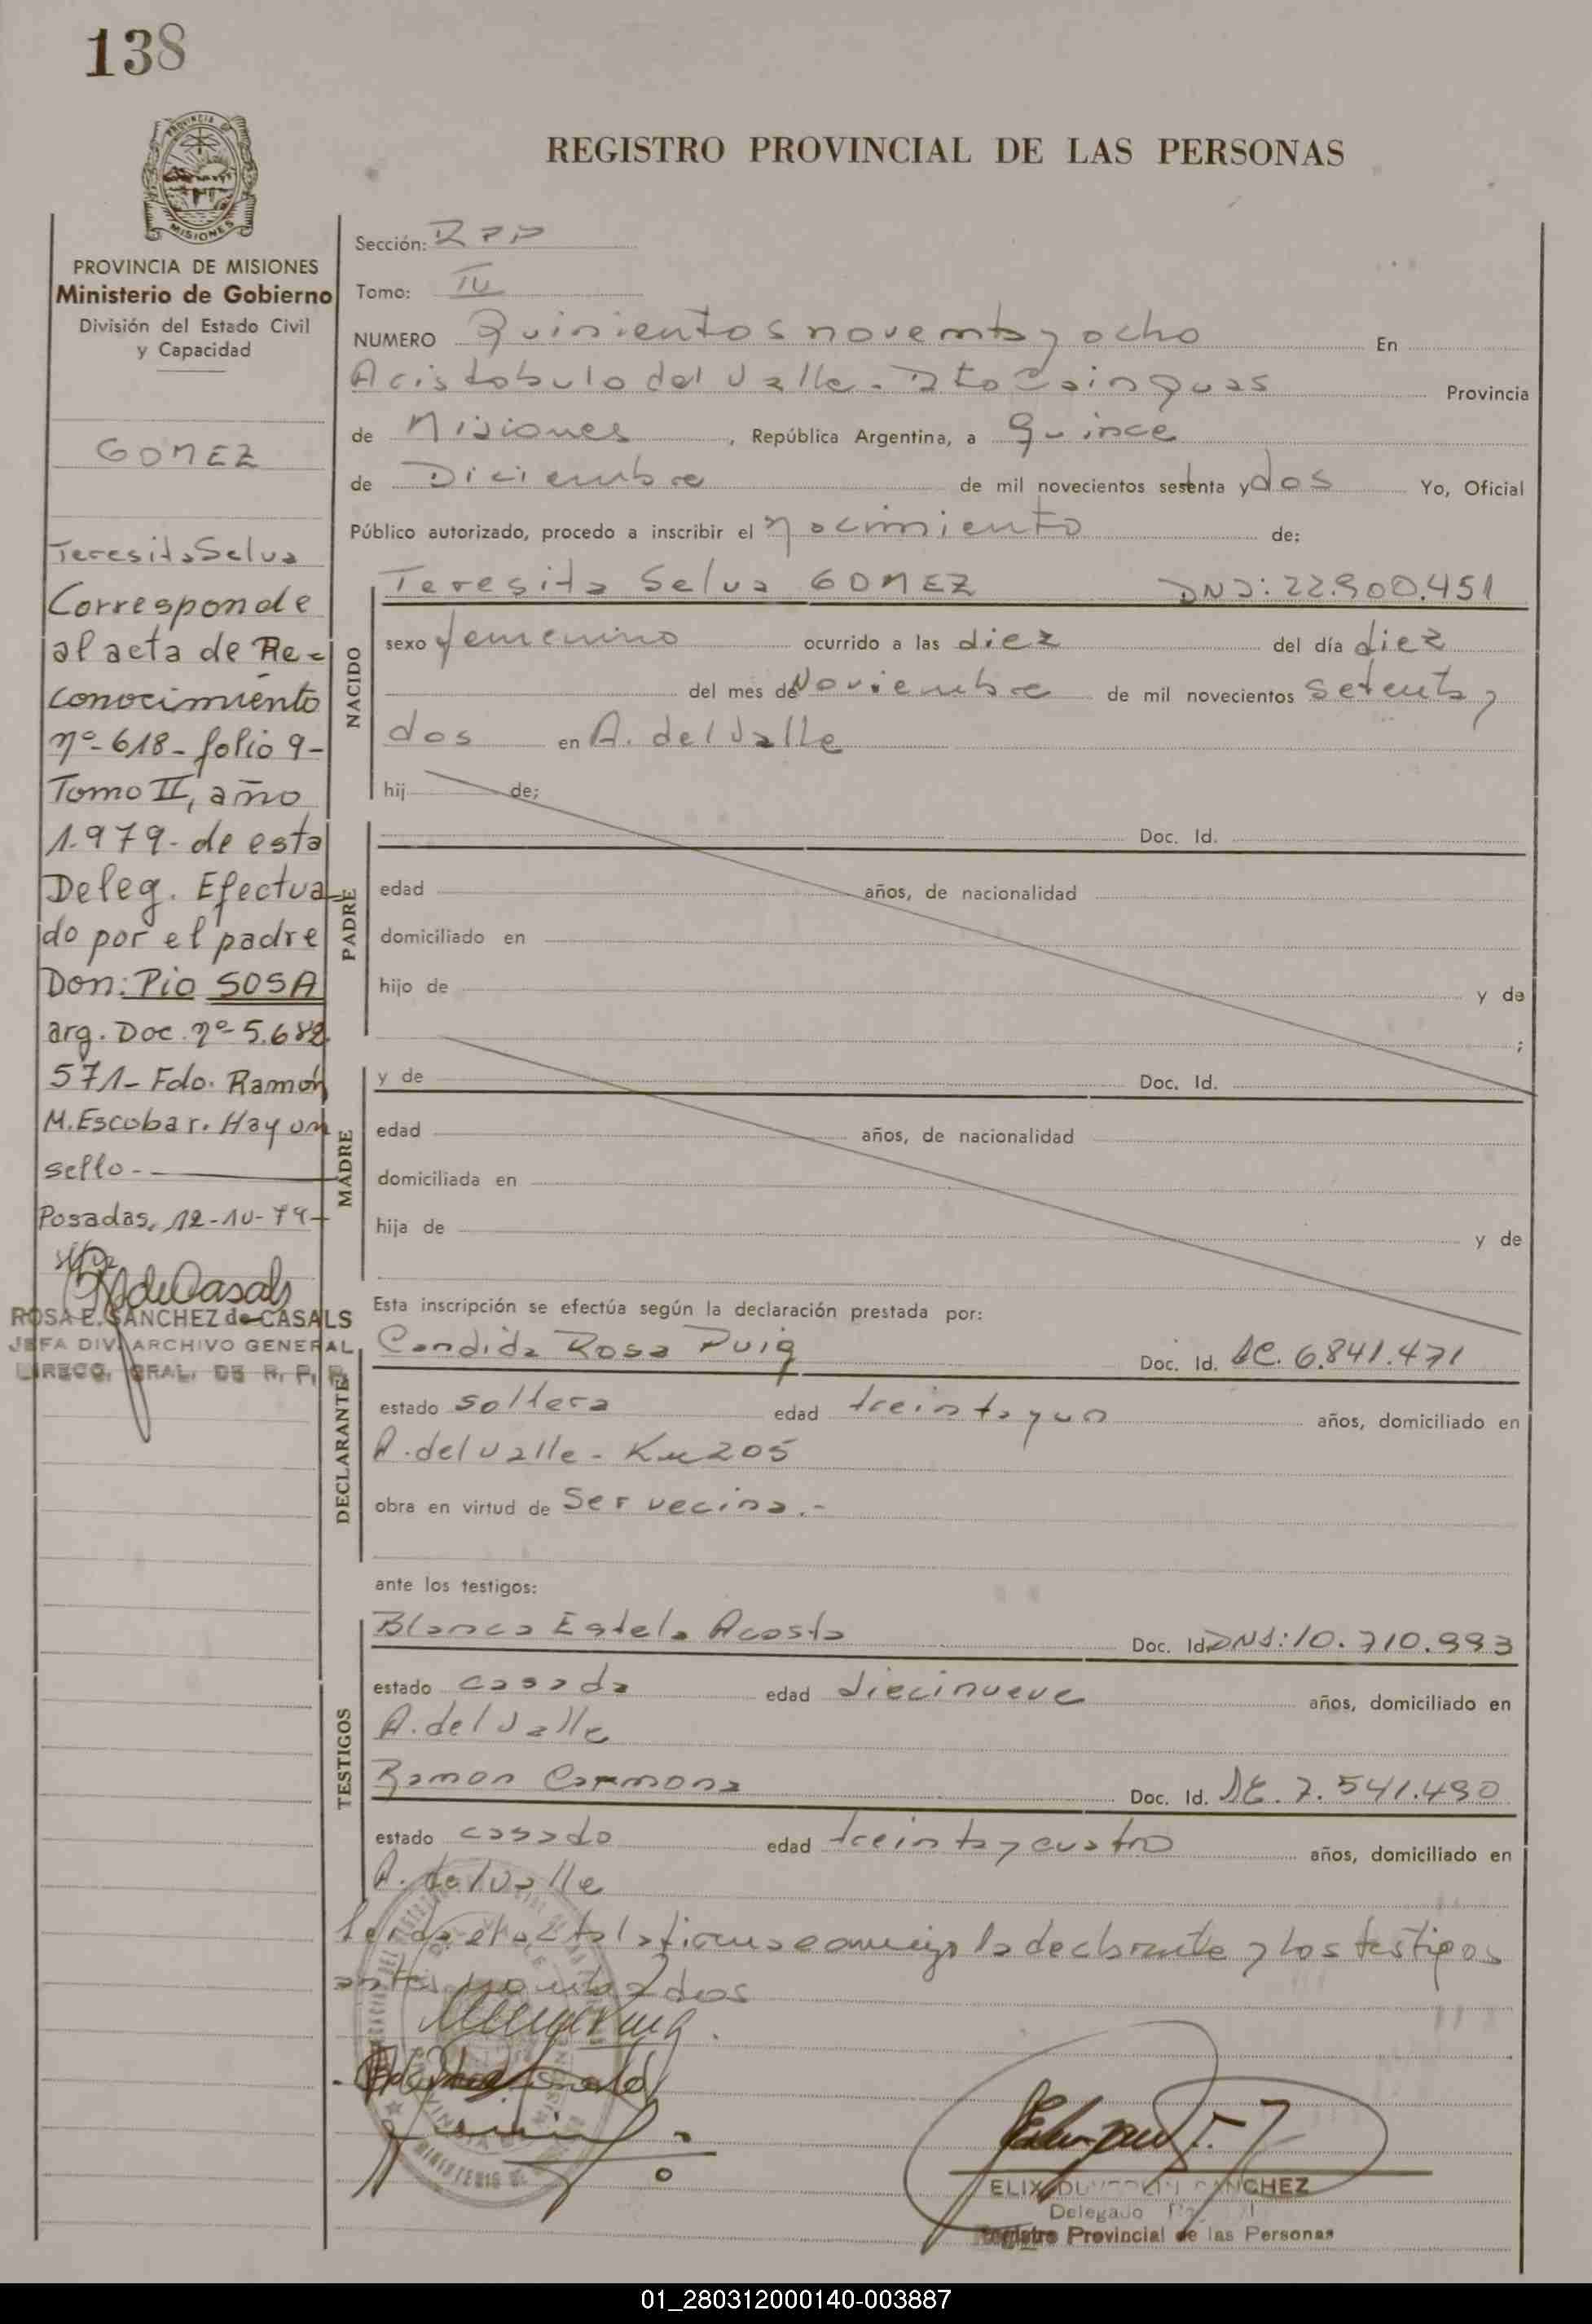 138
PROVINCIA DE
MISIONES
REGISTRO PROVINCIAL DE LAS PERSONAS
PROVINCIA DE MISIONES
Ministerio de Gobierno
División del Estado Civil
y Capacidad
GOMEZ
Teresita Selva
Corresponde
al acta de Re=
conocimiento
nº-618-folio 9-
Tomo II, año
1.979- de esta
Deleg. Efectua
do por el padre
Don: Pio SOSA
arg. Doc. nº-5.682.
571- Fdo. Ramón
M. Escobar. Hay un
sello.-
Posadas, 12-10-79-
ROSA E. SANCHEZ de CASALS
JEFA DIV. ARCHIVO GENERAL
DIRECC. GRAL. DE R. P. P.
Sección: RPP
Tomo: IV
NUMERO Quinientos noventa y ocho En
Aristobulo del Valle - Dto Cainguas Provincia
de Misiones, República Argentina, a Quince
de Diciembre de mil novecientos setenta y dos Yo, Oficial
Público autorizado, procedo a inscribir el nacimiento de:
NACIDO
Teresita Selva GOMEZ DNI: 22.900.451
sexo femenino ocurrido a las diez del día diez
del mes de Noviembre de mil novecientos setenta y
dos en A. del Valle
hij de;
PADRE
Doc. Id.
edad años, de nacionalidad
domiciliado en
hijo de y de
;
MADRE
y de Doc. Id.
edad años, de nacionalidad
domiciliada en
hija de y de
Esta inscripción se efectúa según la declaración prestada por:
DECLARANTE
Candida Rosa Puig Doc. Id. LC. 6.841.471
estado soltera edad treinta y un años, domiciliado en
A. del Valle - Km 205
obra en virtud de ser vecina.-
ante los testigos:
TESTIGOS
Blanca Estela Acosta Doc. Id. DNI: 10.710.993
estado casada edad diecinueve años, domiciliado en
A. del Valle
Ramon Carmona Doc. Id. LE. 7.541.490
estado casado edad treinta y cuatro años, domiciliado en
A. del Valle
Leida el acta la firma conmigo la declarante y los testigos
antes mentados
SANCHEZ
Delegado
Registro Provincial de las Personas
01_280312000140-003887